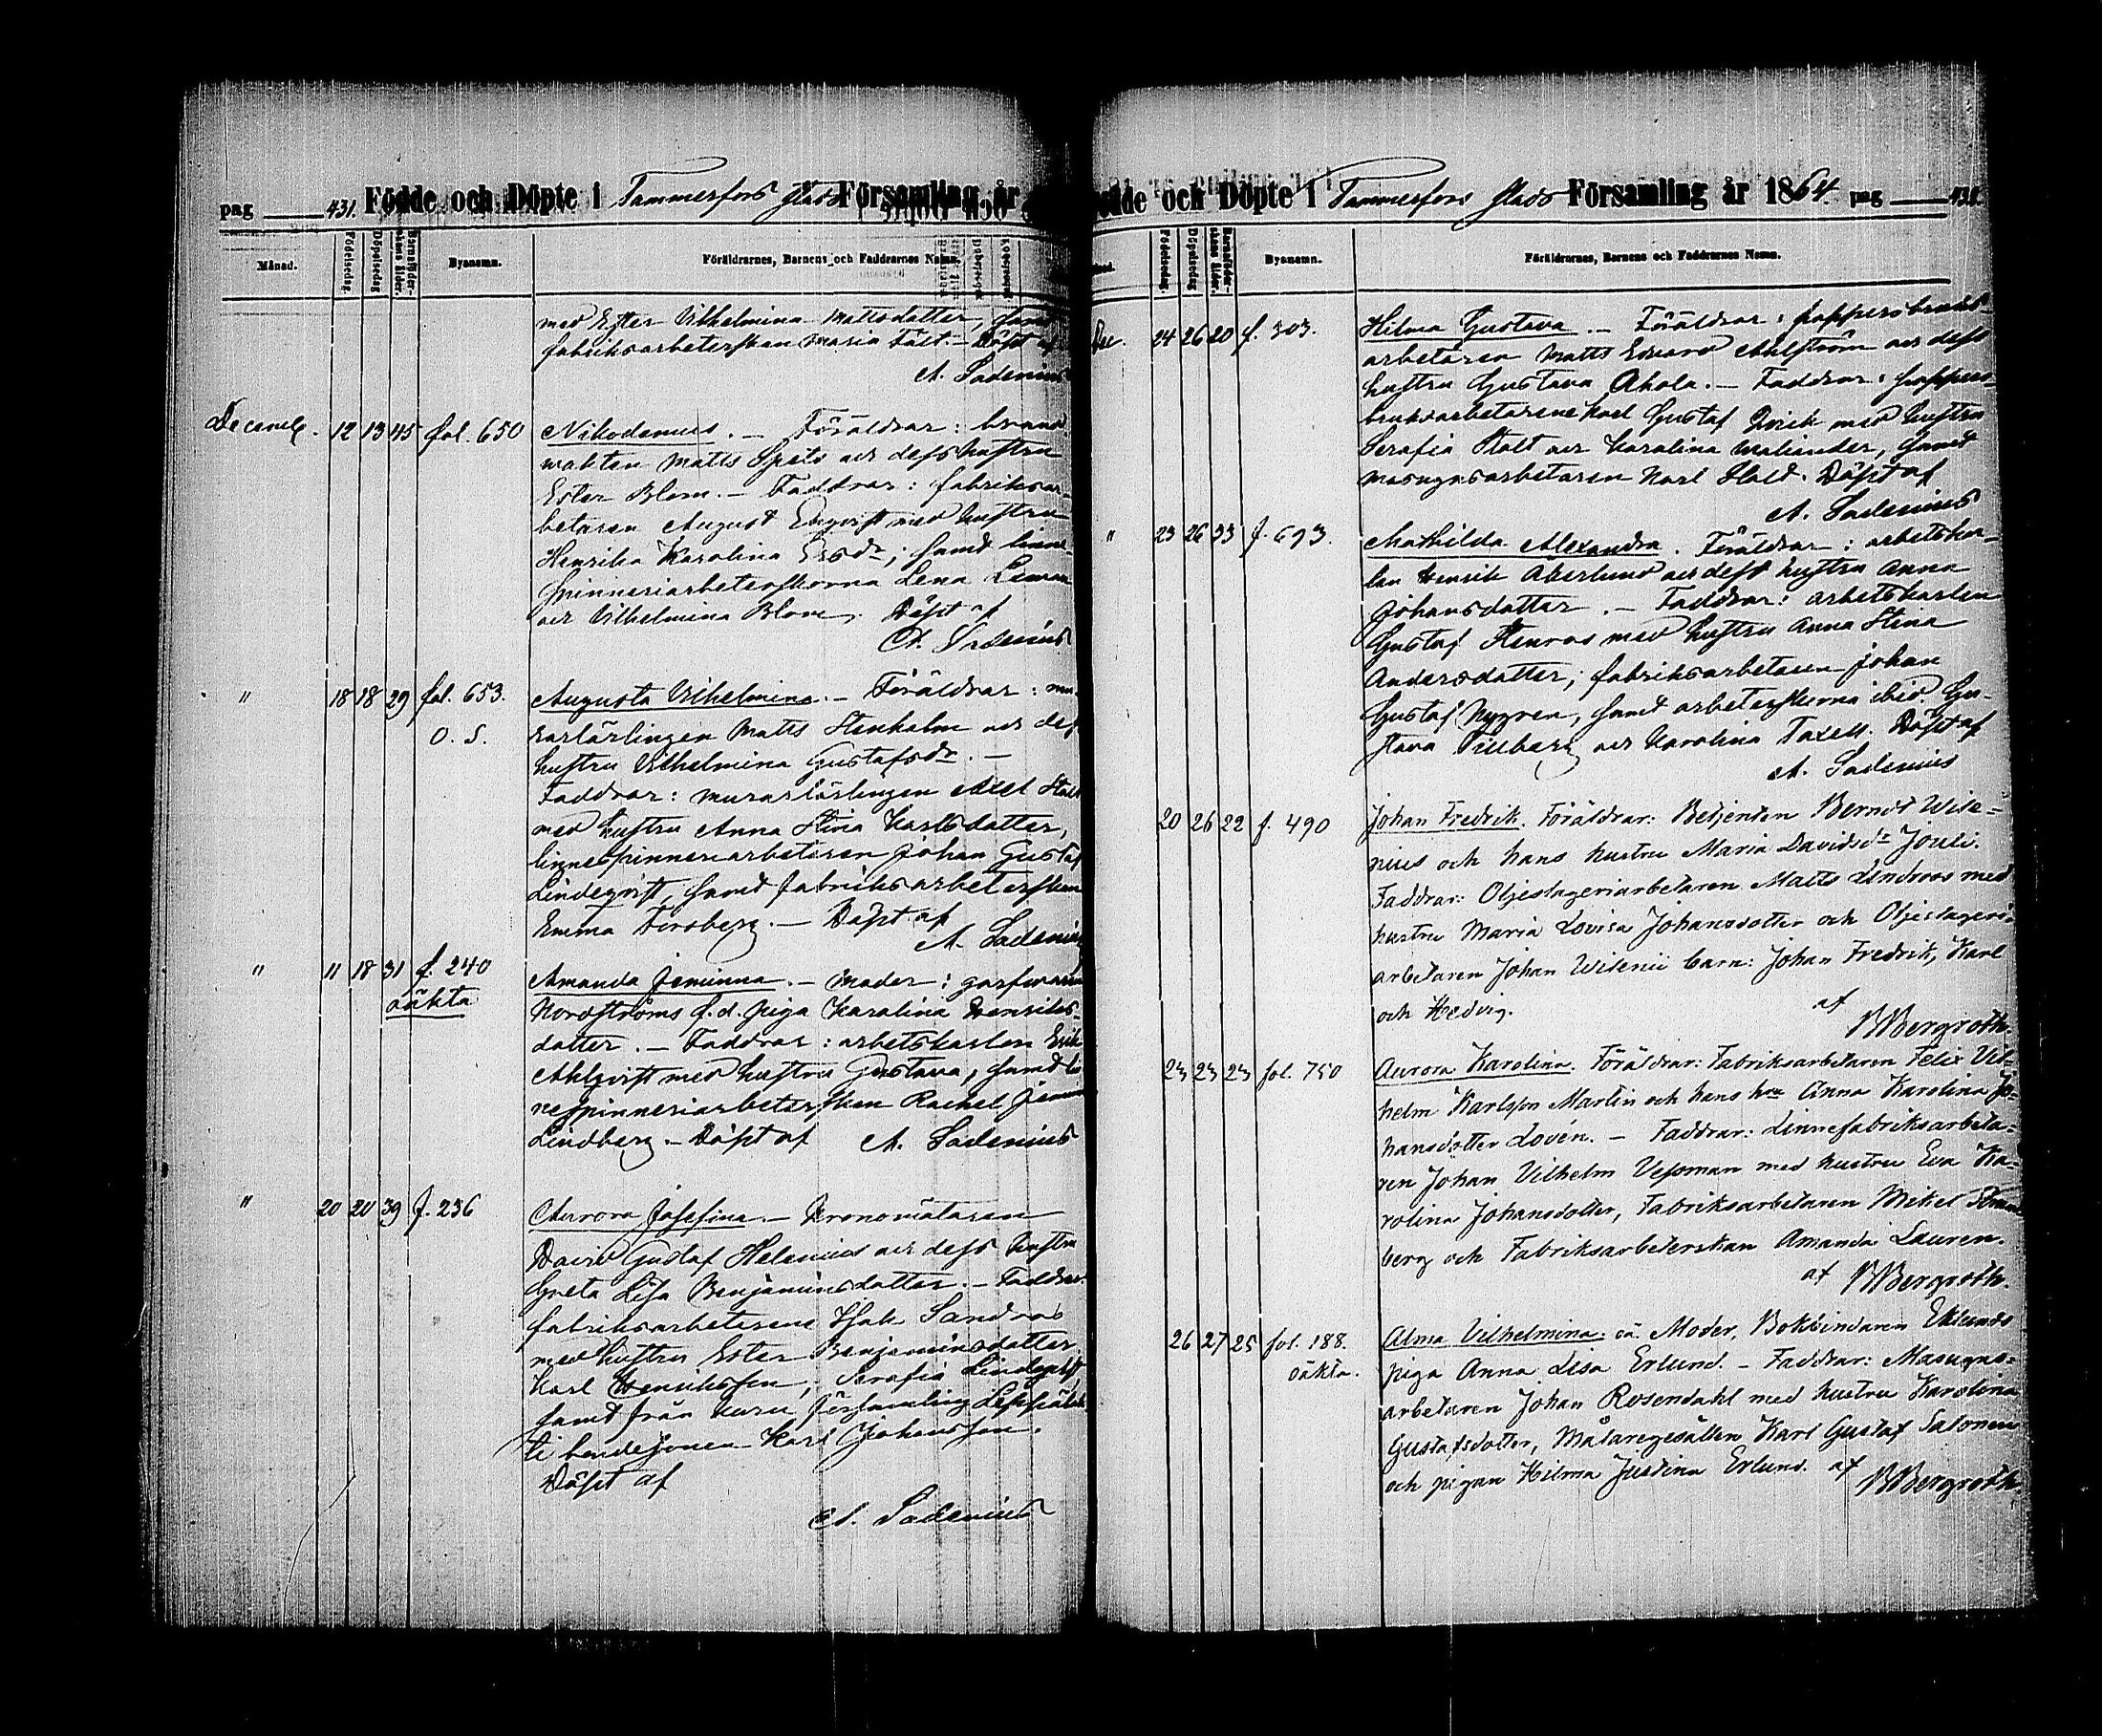 pag 431. Födde och Döpte i Tammerfors stads Församling år
Månad. Födelsedag. Döpelsedag Barnaföderskans ålder. Bysnamn. Föräldrarnes, Barnens och Faddrarnes Namn.
med Ester Vilhelmina Mattsdotter, samt
fabriksarbeterskan Maria Fält. - Döpt af
A. Sadenius
Decemb. 12 13 45 fol. 650 Nikodemus. - Föräldrar: brand
wakten Matts Spets och dess hustru
Ester Blom. - Faddrar: fabriksar-
betaren August Engvist med hustru
Henrika Karolina Ersdr; samt linne-
spinneriarbeterskorna Lena
och Vilhelmina Blom. Döpt af
A. Sadenius
" 18 18 29 fol. 653. Augusta Vilhelmina. - Föräldrar: mu-
O. S. rarlärlingen Matts Stenholm och dess
hustru Vilhelmina Gustafsdr. -
Faddrar: murarlärlingen Axel
med hustru Anna Stina Karlsdotter,
linnespinneriarbetaren Johan Gustaf
Lindeqvist, samt fabriksarbeterskan
Emma Forsberg. - Döpt af
A. Sadenius
" 11 18 31 f. 240 Amanda Jeminna. - Moder: garfwaren
oäkta Nordströms f.d. piga Karolina Henriks-
dotter. - Faddrar: arbetskarlen Erik
Ahlqvist med hustru Gustava, samt li-
nespinneriarbeterskan Rachel
Lindberg. - Döpt af A. Sadenius
" 20 20 39 f. 236 Aurora Josefina. - Kronomätaren
David Gustaf Helenius och dess hustru
Greta Lisa Benjaminsdotter. - Faddrar:
fabriksarbetarene Isak Sandroos
med hustru Ester Benjaminsdotter,
Karl Henriksson, Serafia Lindqvist,
samt från Kuru församling
bondesonen Karl Johansson.
Döpt af
A. Sadenius
Födde och Döpte i Tammerfors stads Församling år 1864. pag 431.
Födelsedag. Döpelsedag Barnaföderskans ålder. Bysnamn. Föräldrarnes, Barnens och Faddrarnes Namn.
Dec. 24 26 20 f. 303. Hilma Gustava. - Föräldrar: pappersbruks-
arbetaren Matts Edvard Ahlström och dess
hustru Gustava Ahola. - Faddrar: pappers-
bruksarbetarene Karl Gustaf Qvick med hustru
Serafia och Karolina Malinder, samt
masugnsarbetaren Karl Stolt. Döpt af
A. Sadenius
" 23 26 33 f. 693. Mathilda Alexandra. Föräldrar: arbetskar-
len Henrik Åkerlund och dess hustru Anna
Johansdotter. - Faddrar: arbetskarlen
Gustaf Stenroos med hustru Anna Stina
Andersdotter; fabriksarbetaren Johan
Gustaf Nygren, samt arbeterskorna ibid. Gu-
stava Tillberg och Karolina Taxell. Döpt af
A. Sadenius
20 26 22 f. 490 Johan Fredrik. Föräldrar: Betjenten Berndt Wile-
nius och hans hustru Maria Davidsdr Jouli.
Faddrar: Oljeslageriarbetaren Matts Lindroos med
hustru Maria Lovisa Johansdotter och Oljeslageri-
arbetaren Johan Wilenii barn: Johan Fredrik, Karl
och Hedvig. af
BBergroth.
23 23 23 fol. 750 Aurora Karolina. Föräldrar: Fabriksarbetaren Felix Vil-
helm Karlsson Martin och hans hru Anna Karolina Jo-
hansdotter Lovén. - Faddrar: Linnefabriksarbeta-
ren Johan Vilhelm Vessman med hustru Eva Ka-
rolina Johansdotter, Fabriksarbetaren Mikel
berg och Fabriksarbeterskan Amanda Lauren.
af BBergroth.
26 27 25 fol. 188. Alma Vilhelmina: oä. Moder, Bokbindaren Eklunds
oäkta. piga Anna Lisa Erlund. - Faddrar: Masugns-
arbetaren Johan Rosendahl med hustru Karolina
Gustafsdotter, Målaregesällen Karl Gustaf Salonen
och pigan Hilma Justina Erlund. af BBergroth.